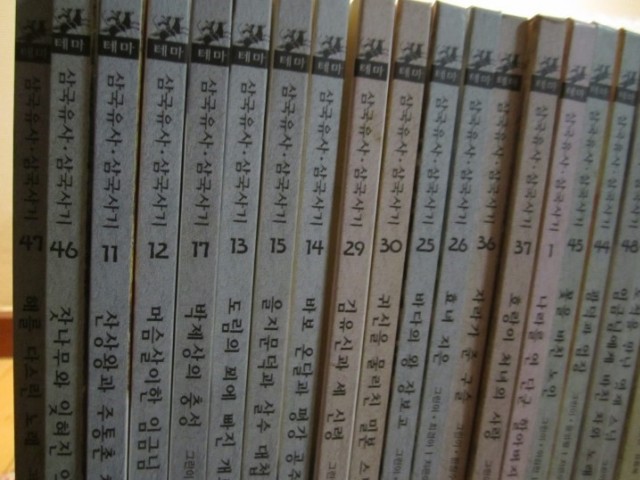 테마 삼국유사·삼국사기 47 해를 다스린 노래
테마 삼국유사·삼국사기 46 잣나무와 잊혀진
테마 삼국유사·삼국사기 11 산상왕과 주통촌
테마 삼국유사·삼국사기 12 머슴살이한 임금님
테마 삼국유사·삼국사기 17 박제상의 충성 그린이
테마 삼국유사·삼국사기 13 도림의 꾀에 빠진
테마 삼국유사·삼국사기 15 을지문덕과 살수 대첩
테마 삼국유사·삼국사기 14 바보 온달과 평강 공주
테마 삼국유사·삼국사기 29 김유신과 세 신령
테마 삼국유사·삼국사기 30 귀신을 물리친 밀본
테마 삼국유사·삼국사기 25 바다의 왕 장보고 그린이
테마 삼국유사·삼국사기 26 효녀 지은 그린이
테마 삼국유사·삼국사기 36 자라가 준 구슬
테마 삼국유사·삼국사기 37 호랑이 처녀의 사랑
테마 삼국유사·삼국사기 1 나라를 연 단군 할아버지
테마 삼국유사·삼국사기 45 꽃을 바친 노인
테마 삼국유사·삼국사기 44
삼국유사·삼국사기 48